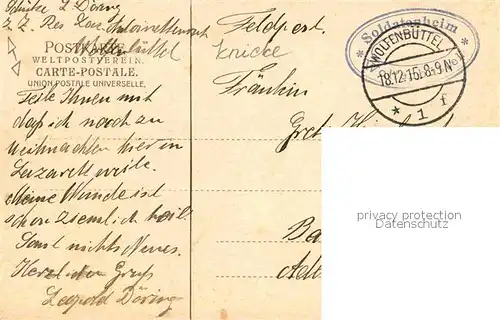 L. Döring
Z. Z. Res. Laz. Antoinettenruh
Wolfenbüttel
POSTKARTE
WELTPOSTVEREIN.
CARTE-POSTALE.
UNION POSTALE UNIVERSELLE.
Teile Ihnen mit
daß ich noch zu
Weihnachten hier in
Lazarett weile.
Meine Wunde ist
schon ziemlich heil
Sonst nichts Neues.
Herzl. Gruß
Leopold Döring
Feldpost.
knicke
Fräulein
Soldatenheim
WOLFENBÜTTEL
18.12.15.8-9N
* 1 f
privacy protection
VDMedien24.de